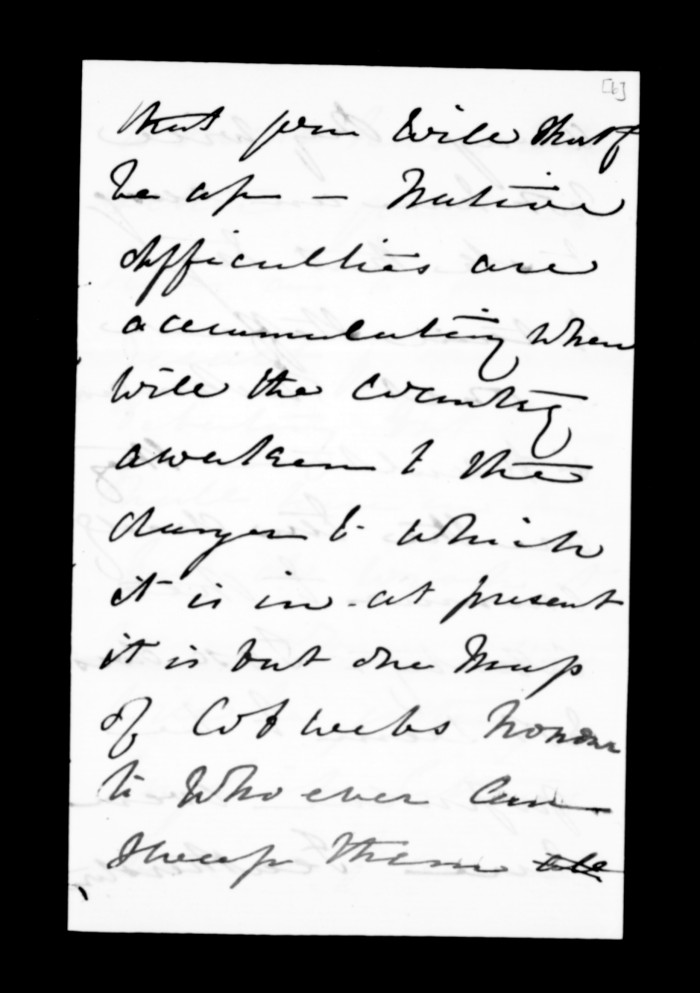 [6]
that you will shortly
be up — Native
difficulties are
accumulating when
will the Country
awaken to the
danger to which
it is in - at present
it is but one Mass
of Cobwebs honour
to Who ever can
Sweep them